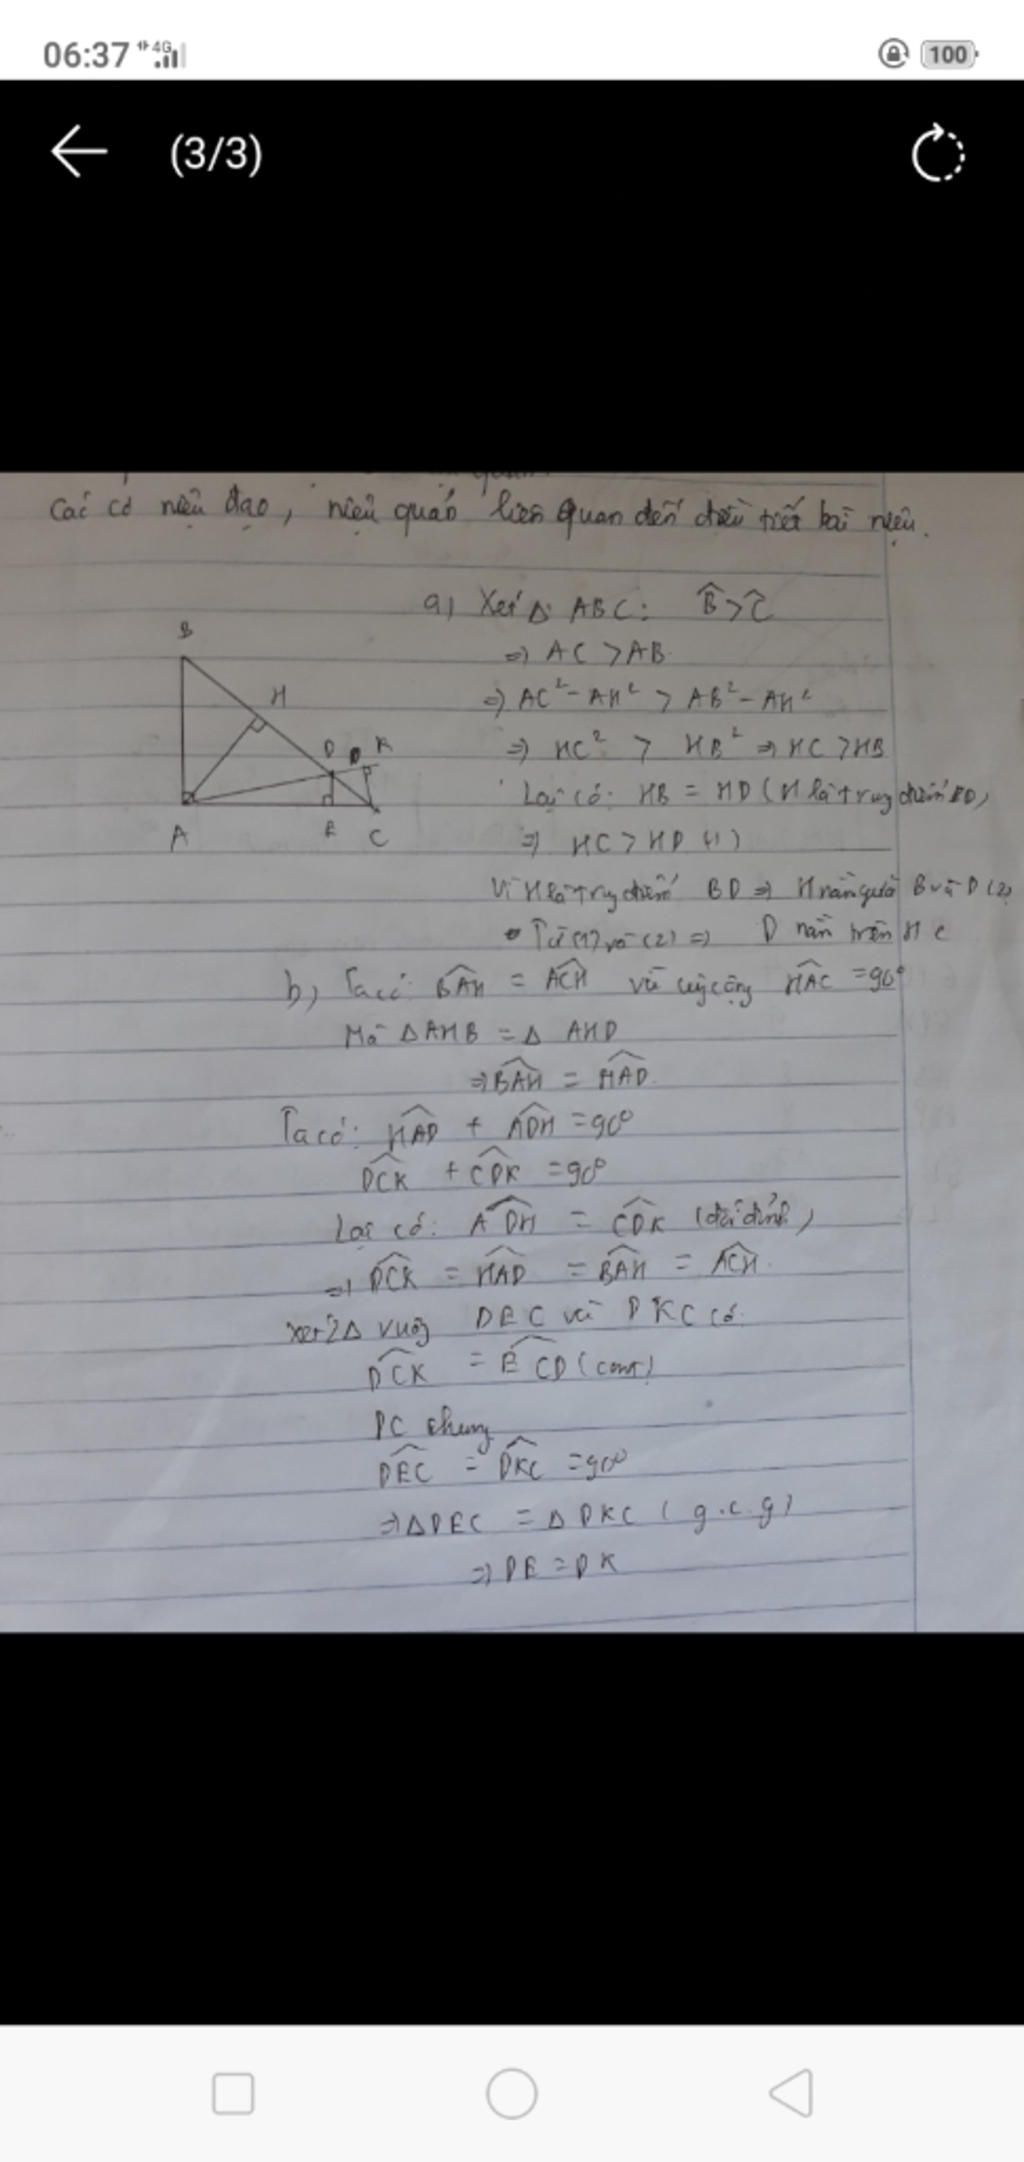 06:37 4G 100
(3/3)
các cơ niệu đạo, niệu quản liên quan đến điều tiết bài niệu.
a) Xét Δ ABC: B̂ > Ĉ
B
⇒ AC > AB
H
⇒ AC² - AH² > AB² - AH²
D K
⇒ HC² > HB² ⇒ HC > HB
Lại có: HB = HD (H là trung điểm BD)
A E C
⇒ HC > HD (1)
Vì H là trung điểm BD ⇒ H nằm giữa B và D (2)
Từ (1) và (2) ⇒ D nằm trên HC
b) Ta có: BAH = ACH vì cùng cộng HAC = 90°
Mà Δ AHB = Δ AHD
⇒ BAH = HAD
Ta có: HAD + ADH = 90°
DCK + CDK = 90°
Lại có: ADH = CDK (đối đỉnh)
⇒ DCK = HAD = BAH = ACH
Xét 2Δ vuông DEC và DKC có:
DCK = ECD (cmt)
DC chung
DEC = DKC = 90°
⇒ Δ DEC = Δ DKC (g.c.g)
⇒ DE = DK